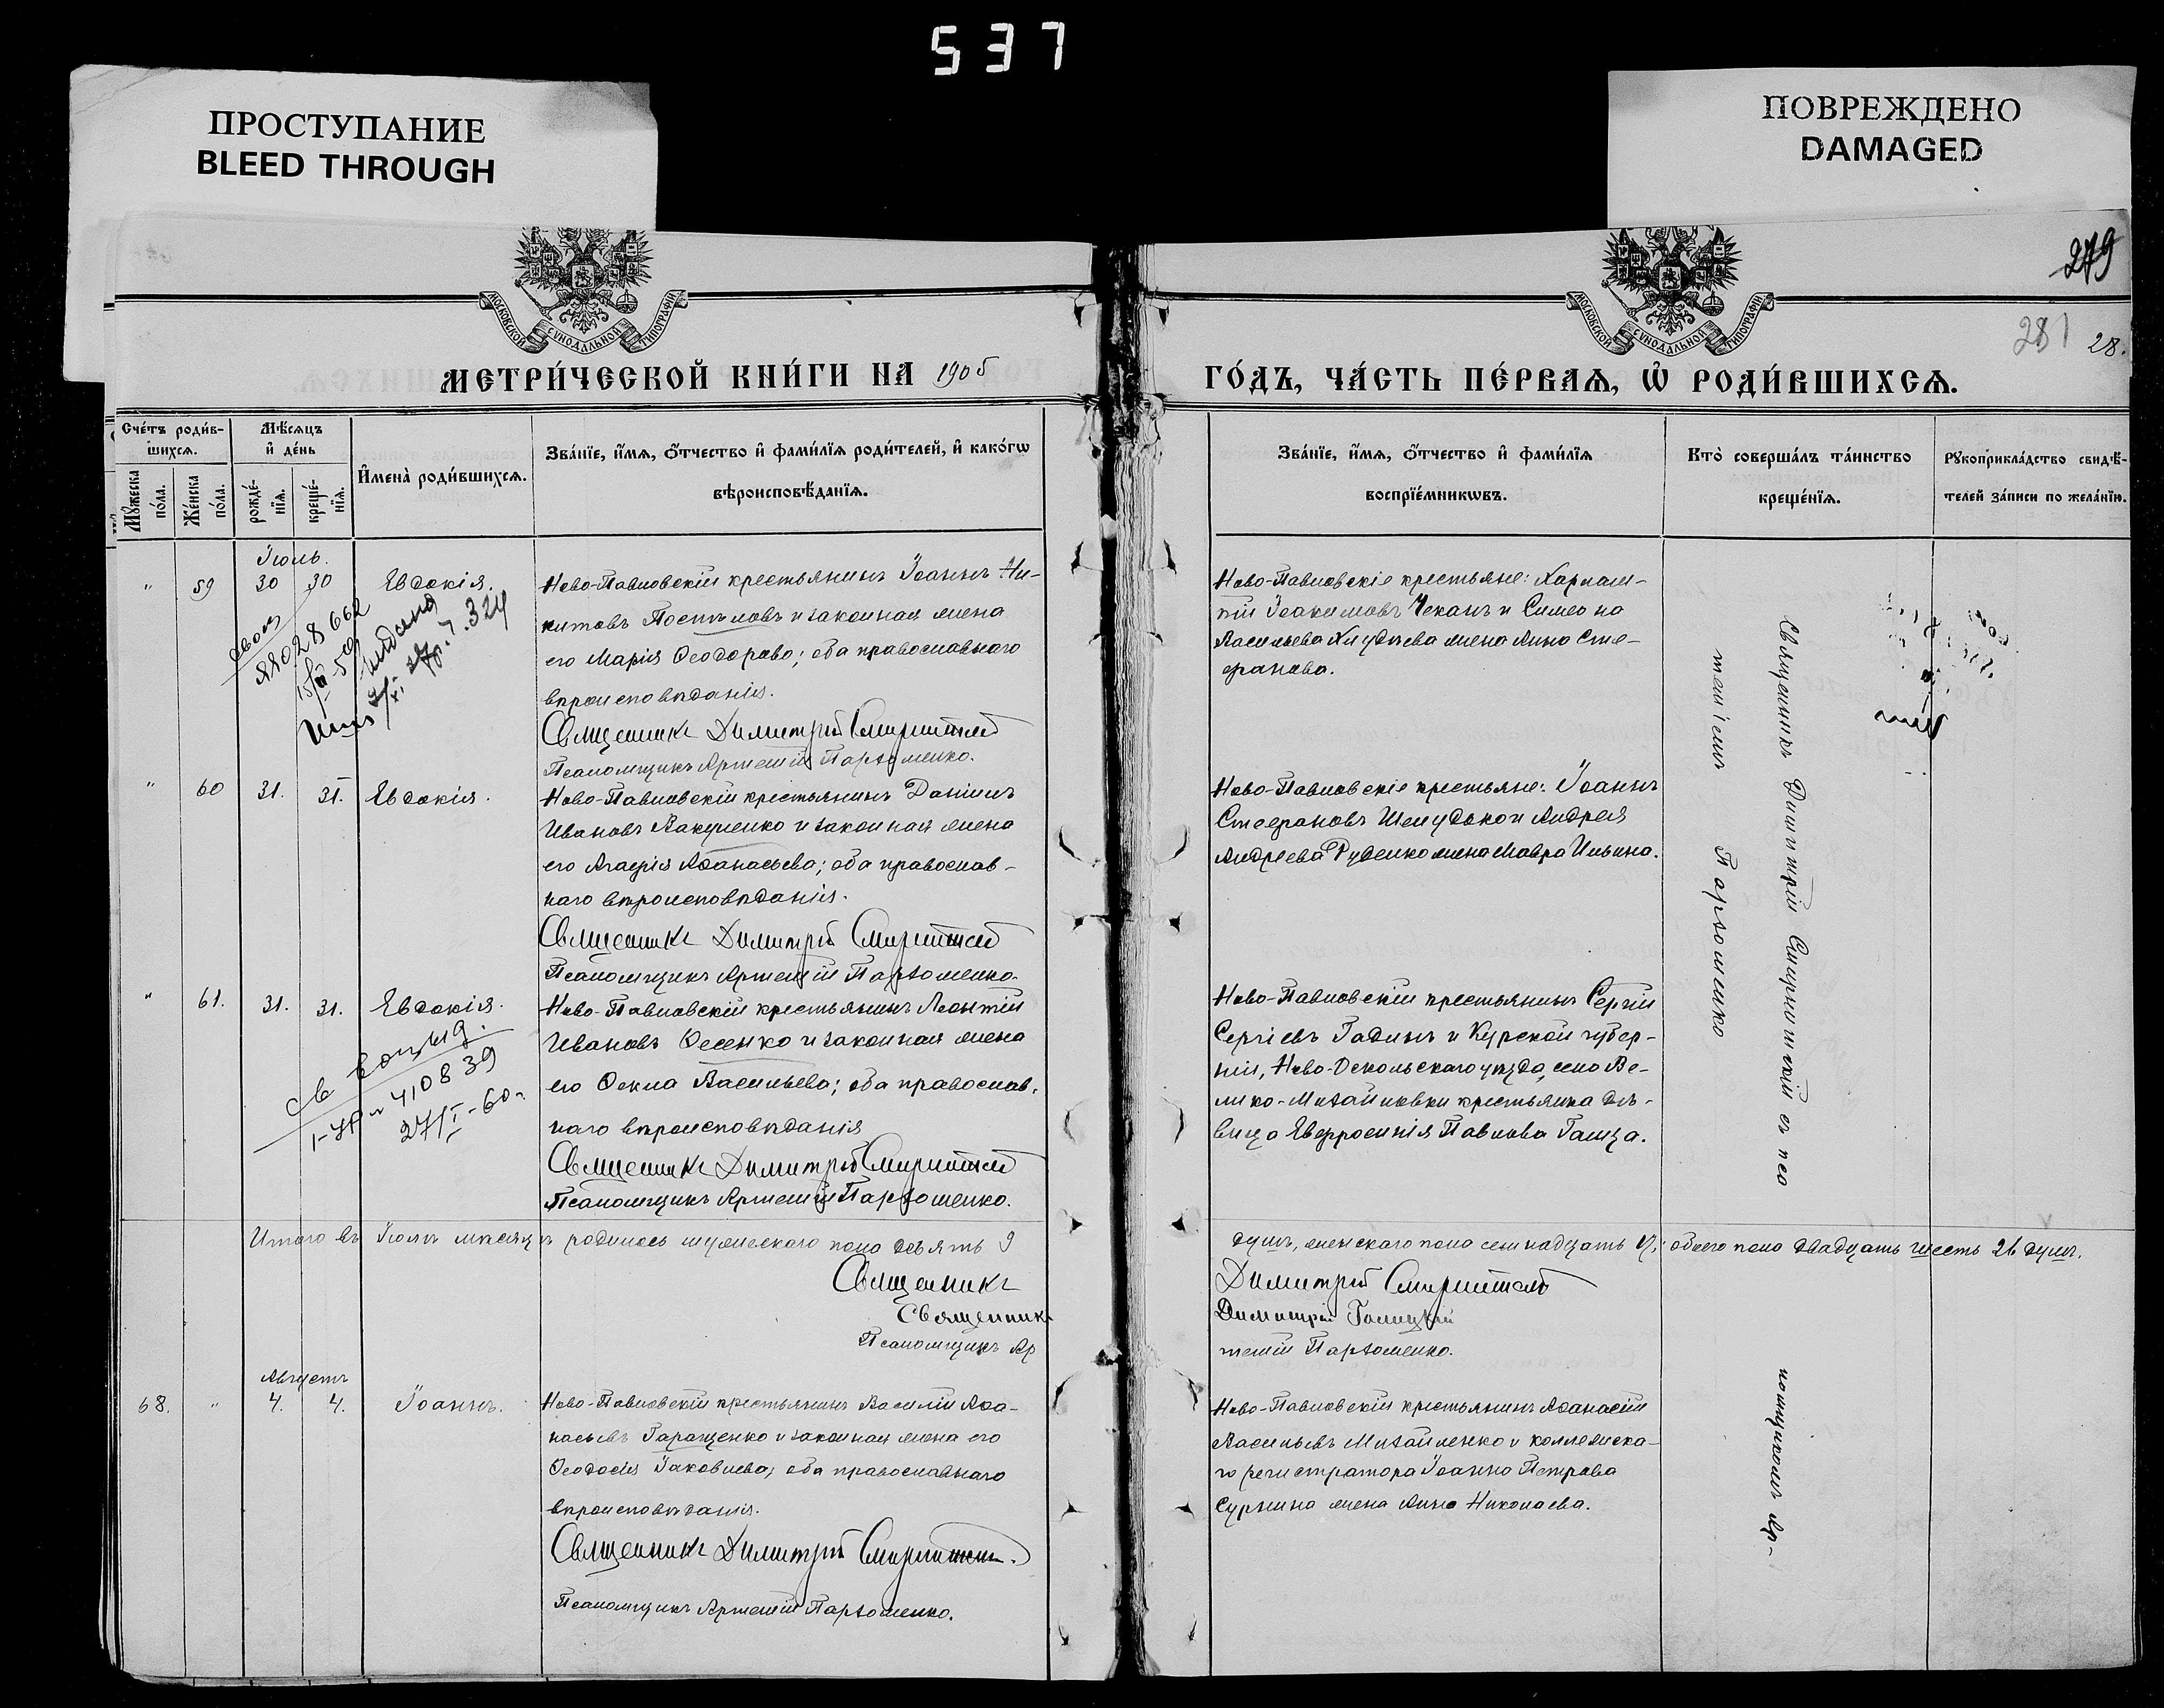 537
ПРОСТУПАНИЕ
BLEED THROUGH
ПОВРЕЖДЕНО
DAMAGED
279
281
28.
МОСКОВСКОЙ СѴНОДАЛЬНОЙ ТИПОГРАФІИ
МОСКОВСКОЙ СѴНОДАЛЬНОЙ ТИПОГРАФІИ
МЕТРИ́ЧЕСКОЙ КНИ́ГИ НА 1905
ГО́ДЪ, ЧА́СТЬ ПЕ́РВАѦ, Ѡ҆ РОДИ́ВШИХСѦ.
Сче́тъ роди́в-
шихсѧ.
Мꙋжеска по́ла.
Же́нска по́ла.
Мѣ́сѧцъ
и҆ де́нь
рожде́-
нїѧ.
креще́-
нїѧ.
И҆мена̀ роди́вшихсѧ.
Зва́нїе, и҆́мѧ, ѻ҆́тчество и҆ фами́лїѧ роди́телей, и҆ како́гѡ
вѣроисповѣ́данїѧ.
Зва́нїе, и҆́мѧ, ѻ҆́тчество и҆ фами́лїѧ
воспрїе́мникѡвъ.
Кто̀ соверша́лъ та́инство
креще́нїѧ.
Рꙋкоприкла́дство свидѣ́-
телей за́писи по жела́нїю.
Іюль.
" 59 30 30 Евдокія.
Ново-Павловскій крестьянинъ Іоаннъ Ни-
китовъ Постыловъ и законная жена
его Марія Ѳеодорова; оба православнаго
вѣроисповѣданія.
Священникъ Димитрій
Псаломщикъ Артемій Пархоменко.
Ново-Павловскіе крестьяне: Харлам-
пій Іоакимовъ Чеканъ и Симеона
Васильева жена Анна Сте-
фанова.
" 60 31. 31. Евдокія.
Ново-Павловскій крестьянинъ Даніилъ
Ивановъ Вакуленко и законная жена
его Агафія Аѳанасьева; оба православ-
наго вѣроисповѣданія.
Священникъ Димитрій
Псаломщикъ Артемій Пархоменко.
Ново-Павловскіе крестьяне: Іоаннъ
Стефановъ Шелудько и Андрея
Андреева Руденко жена Мавра Ильина.
" 61. 31. 31. Евдокія.
410839
27/I-60г.
Ново-Павловскій крестьянинъ Леонтій
Ивановъ Ѳесенко и законная жена
его Ѳекла Васильева; оба православ-
наго вѣроисповѣданія
Священникъ Димитрій
Псаломщикъ Артемій Пархоменко.
Ново-Павловскій крестьянинъ Сергій
Сергіевъ Гадинъ и Курской губер-
ніи, Ново-Оскольскаго уѣзда, села Ве-
лико-Михайловки крестьянка дѣ-
вица Евфросинія Павлова Галца.
Итого въ Іюлѣ мѣсяцѣ родилось мужескаго пола девять 9
душъ, женскаго пола семнадцать 17; обоего пола двадцать шесть 26 душъ.
Священникъ
Димитрій
Священникъ
Димитрій Галицкій
Псаломщикъ Ар
темій Пархоменко.
Августъ
68. " 4. 4. Іоаннъ.
Ново-Павловскій крестьянинъ Василій Аѳа-
насьевъ Гаращенко и законная жена его
Ѳеодосія Іаковлева; оба православнаго
вѣроисповѣданія.
Священникъ Димитрій
Псаломщикъ Артемій Пархоменко.
Ново-Павловскій крестьянинъ Аѳанасій
Васильевъ Михайленко и коллежска-
го регистратора Іоанна Петрова
Сурнина жена Анна Николаева.
Священникъ Димитрій съ псо
ломщикомъ Ар-
теміемъ Пархоменко